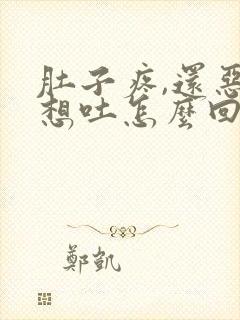 肚子疼,還惡
想吐怎麼回
鄭凱